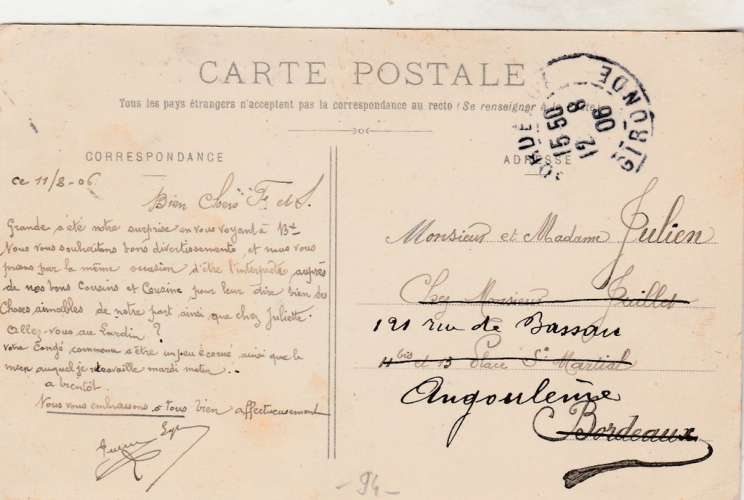 CARTE POSTALE
Tous les pays étrangers n'acceptent pas la correspondance au recto (Se renseigner à la
CORRESPONDANCE
ce 11/8-06
Bien Chers F. et J.
Grande a été notre surprise en vous voyant à Bx
Nous vous souhaitons bons divertissements, et nous vous
prions par la même occasion d'être l'interprète auprès
de nos bons Cousins et Cousine pour leur dire bien des
Choses aimables de notre part ainsi que chez Juliette.
Allez-vous au Lardin ?
Votre Congé, commence d'être un peu écorné ainsi que le
mien auquel je travaille mardi matin...
a bientôt.
Nous vous embrassons tous bien affectueusement
ADRESSE
GIRONDE
15 50
12 8
06
Monsieur et Madame Julien
Chez Monsieur Juillet
191 rue de Bassau
11 bis et 13 Place St Martial
Angoulême
Bordeaux
-94-